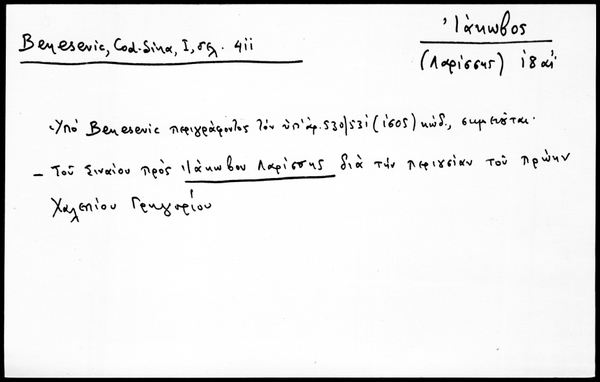 Benesevic, Cod. Sina, I, σελ. 411
Ἰάκωβος
(Λαρίσσης) 18 αἰ.
Ὑπό Benesevic περιγράφοντος τόν ὑπ' ἀρ. 530/531 (1505) κώδ., σημειοῦται.
- Τοῦ Σιναίου πρός Ἰάκωβον Λαρίσσης διά τήν περιουσίαν τοῦ πρώην
Χαλεπίου Γρηγορίου